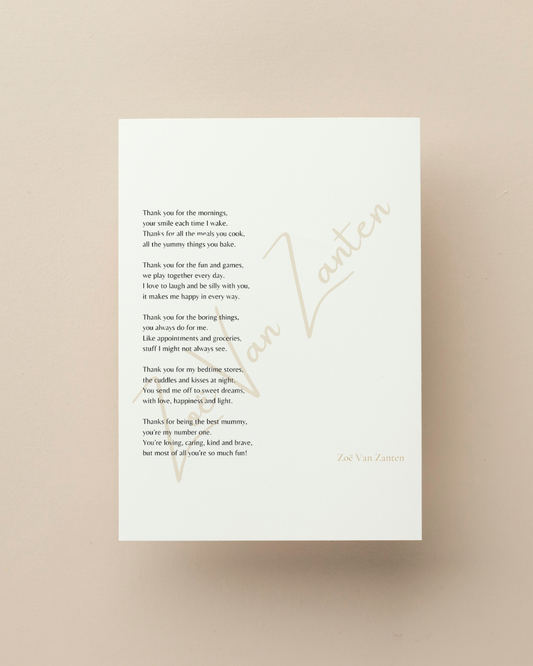 Thank you for the mornings,
your smile each time I wake.
Thanks for all the meals you cook,
all the yummy things you bake.
Thank you for the fun and games,
we play together every day.
I love to laugh and be silly with you,
it makes me happy in every way.
Thank you for the boring things,
you always do for me.
Like appointments and groceries,
stuff I might not always see.
Thank you for my bedtime stores,
the cuddles and kisses at night.
You send me off to sweet dreams,
with love, happiness and light.
Thanks for being the best mummy,
you're my number one.
You're loving, caring, kind and brave,
but most of all you're so much fun!
Zoë Van Zanten
Zoë Van Zanten